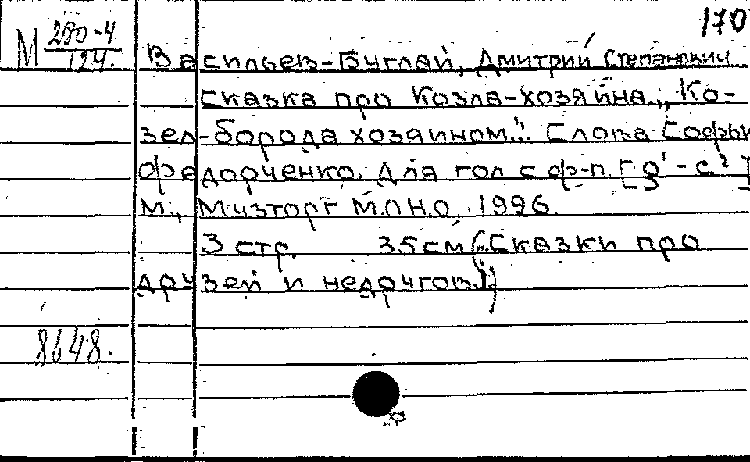 170
М 280-4
124.
Васильев-Буглай, Дмитрий Степанович
Сказка про Козла-хозяина „Ко-
зел-борода хозяином". Слова Софьи
Федорченко. Для гол с ф-п. [g¹-c²]
М., Музторг М.О.Н.О. 1926.
3 стр. 35см (Сказки про
друзей и недругов.)
8648.